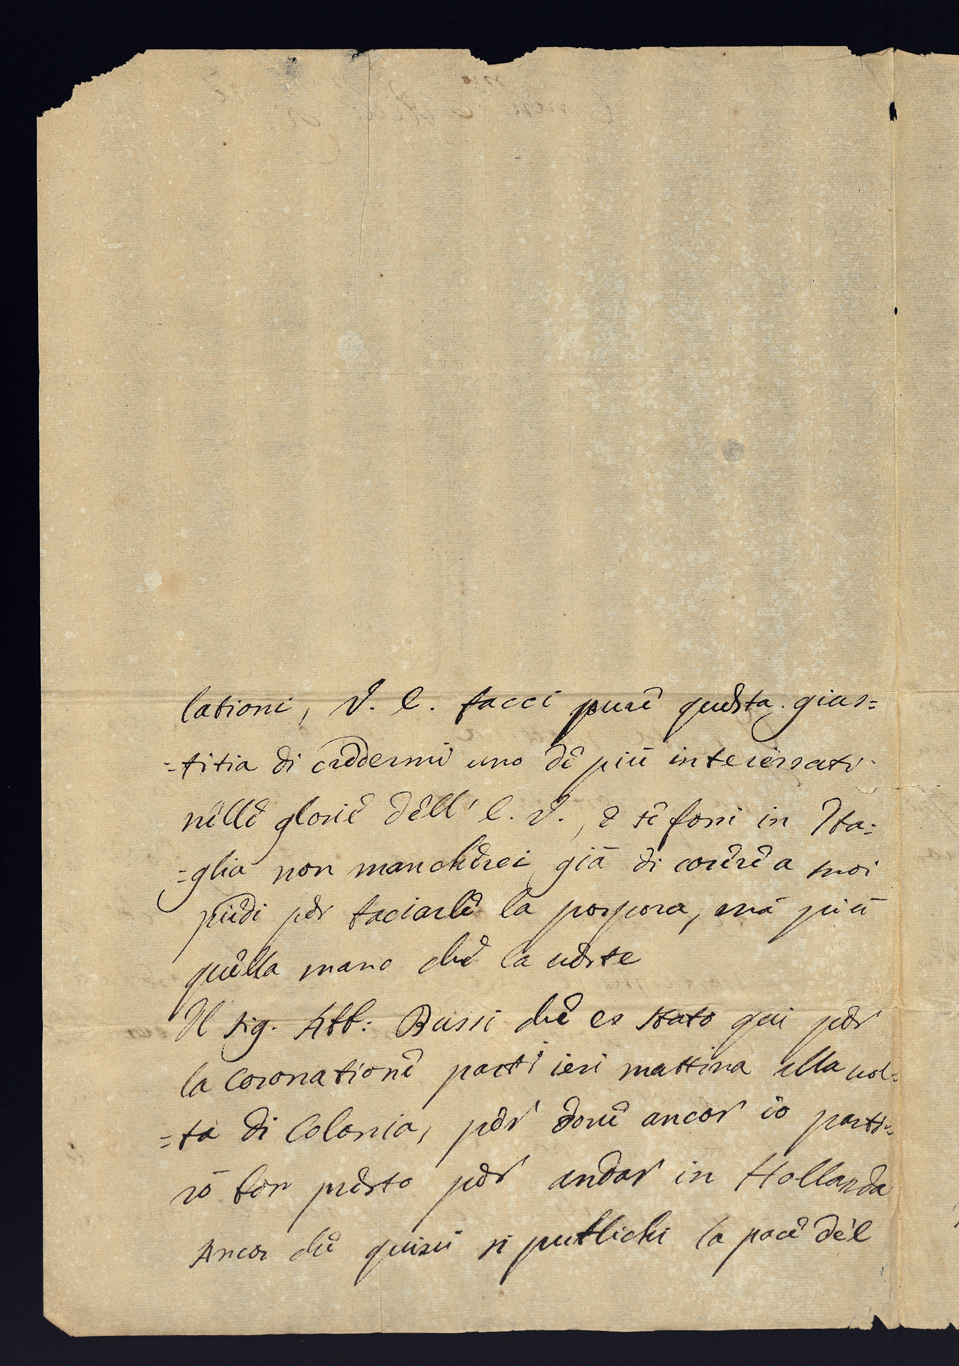 lationi, V. E. facci pure questa gius=
=titia di credermi uno de più interessati
nelle glorie dell' E. V., e se fossi in Ita=
=glia non mancherei già di correre a suoi
piedi per baciarle la porpora, mà più
quella mano che la veste
Il sig. Abb: Bussi che es stato qui per
la Coronatione parti ieri mattina alla uol=
=ta di Colonia, per doue ancor io parti=
rò ben presto per andar in Hollanda
Ancor che quiui si publichi la pace del